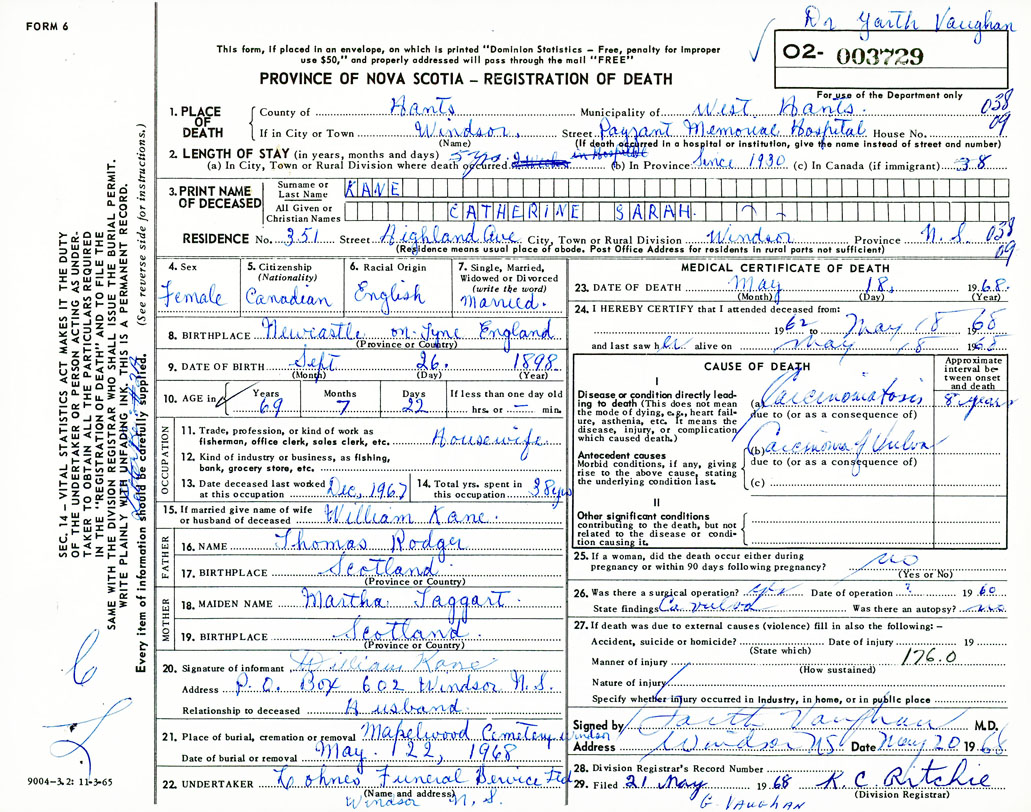 FORM 6
Dr Garth Vaughan
This form, if placed in an envelope, on which is printed "Dominion Statistics – Free, penalty for improper
use $50," and properly addressed will pass through the mail "FREE"
O2- 003729
PROVINCE OF NOVA SCOTIA – REGISTRATION OF DEATH
For use of the Department only
1. PLACE OF DEATH County of Hants Municipality of West Hants. 038
If in City or Town Windsor, Street Payzant Memorial Hospital House No. 09
(Name) (If death occurred in a hospital or institution, give the name instead of street and number)
2. LENGTH OF STAY (in years, months and days) in Hospital
(a) In City, Town or Rural Division where death occurred 5 yrs. (b) In Province Since 1930. (c) In Canada (if immigrant) 38
3. PRINT NAME OF DECEASED Surname or Last Name KANE
All Given or Christian Names CATHERINE SARAH
RESIDENCE No. 351 Street Highland Ave City, Town or Rural Division Windsor Province N.S. 038
(Residence means usual place of abode. Post Office Address for residents in rural parts not sufficient) 09
4. Sex Female
5. Citizenship (Nationality) Canadian
6. Racial Origin English
7. Single, Married, Widowed or Divorced (write the word) Married.
8. BIRTHPLACE Newcastle on-Tyne England
(Province or Country)
9. DATE OF BIRTH Sept 26. 1898
(Month) (Day) (Year)
10. AGE in Years 69 Months 7 Days 22 If less than one day old hrs. or — min.
OCCUPATION
11. Trade, profession, or kind of work as
fisherman, office clerk, sales clerk, etc. Housewife
12. Kind of industry or business, as fishing,
bank, grocery store, etc.
13. Date deceased last worked at this occupation Dec, 1967
14. Total yrs. spent in this occupation 38 yrs
15. If married give name of wife or husband of deceased William Kane.
FATHER
16. NAME Thomas Rodger
17. BIRTHPLACE Scotland
(Province or Country)
MOTHER
18. MAIDEN NAME Martha Taggart.
19. BIRTHPLACE Scotland
(Province or Country)
20. Signature of informant William Kane
Address P.O. Box 602 Windsor N.S.
Relationship to deceased Husband.
21. Place of burial, cremation or removal Mapelwood Cemetery Windsor
Date of burial or removal May. 22, 1968
22. UNDERTAKER Cohnes Funeral Service Ltd
(Name and address)
Windsor N.S.
MEDICAL CERTIFICATE OF DEATH
23. DATE OF DEATH May 18, 1968.
(Month) (Day) (Year)
24. I HEREBY CERTIFY that I attended deceased from:
1962 to May 18 1968
and last saw her alive on May 18 1968
CAUSE OF DEATH
Approximate interval between onset and death
I
Disease or condition directly leading to death (This does not mean the mode of dying, e.g., heart failure, asthenia, etc. It means the disease, injury, or complication which caused death.)
(a) Carcinomatosis 8 years
due to (or as a consequence of)
Antecedent causes
Morbid conditions, if any, giving rise to the above cause, stating the underlying condition last.
(b) Carcinoma of Vulva
due to (or as a consequence of)
(c)
II
Other significant conditions
contributing to the death, but not related to the disease or condition causing it.
25. If a woman, did the death occur either during
pregnancy or within 90 days following pregnancy? no
(Yes or No)
26. Was there a surgical operation? yes Date of operation ? 1960
State findings Ca vulva Was there an autopsy? no
27. If death was due to external causes (violence) fill in also the following: –
Accident, suicide or homicide? Date of injury 19
(State which)
Manner of injury 176.0
(How sustained)
Nature of injury
Specify whether injury occurred in industry, in home, or in public place
Signed by Garth Vaughan M.D.
Address Windsor NS. Date May 20 1968
28. Division Registrar's Record Number
29. Filed 21 May 1968 R. C. Ritchie
(Division Registrar)
G. VAUGHAN
SEC. 14 – VITAL STATISTICS ACT MAKES IT THE DUTY
OF THE UNDERTAKER OR PERSON ACTING AS UNDER-
TAKER TO OBTAIN ALL THE PARTICULARS REQUIRED
IN THE "REGISTRATION OF DEATH" AND TO FILE THE
SAME WITH THE DIVISION REGISTRAR WHO SHALL ISSUE THE BURIAL PERMIT.
WRITE PLAINLY WITH UNFADING INK, THIS IS A PERMANENT RECORD.
Every item of information should be carefully supplied. (See reverse side for instructions.)
9004-3.2: 11-3-65